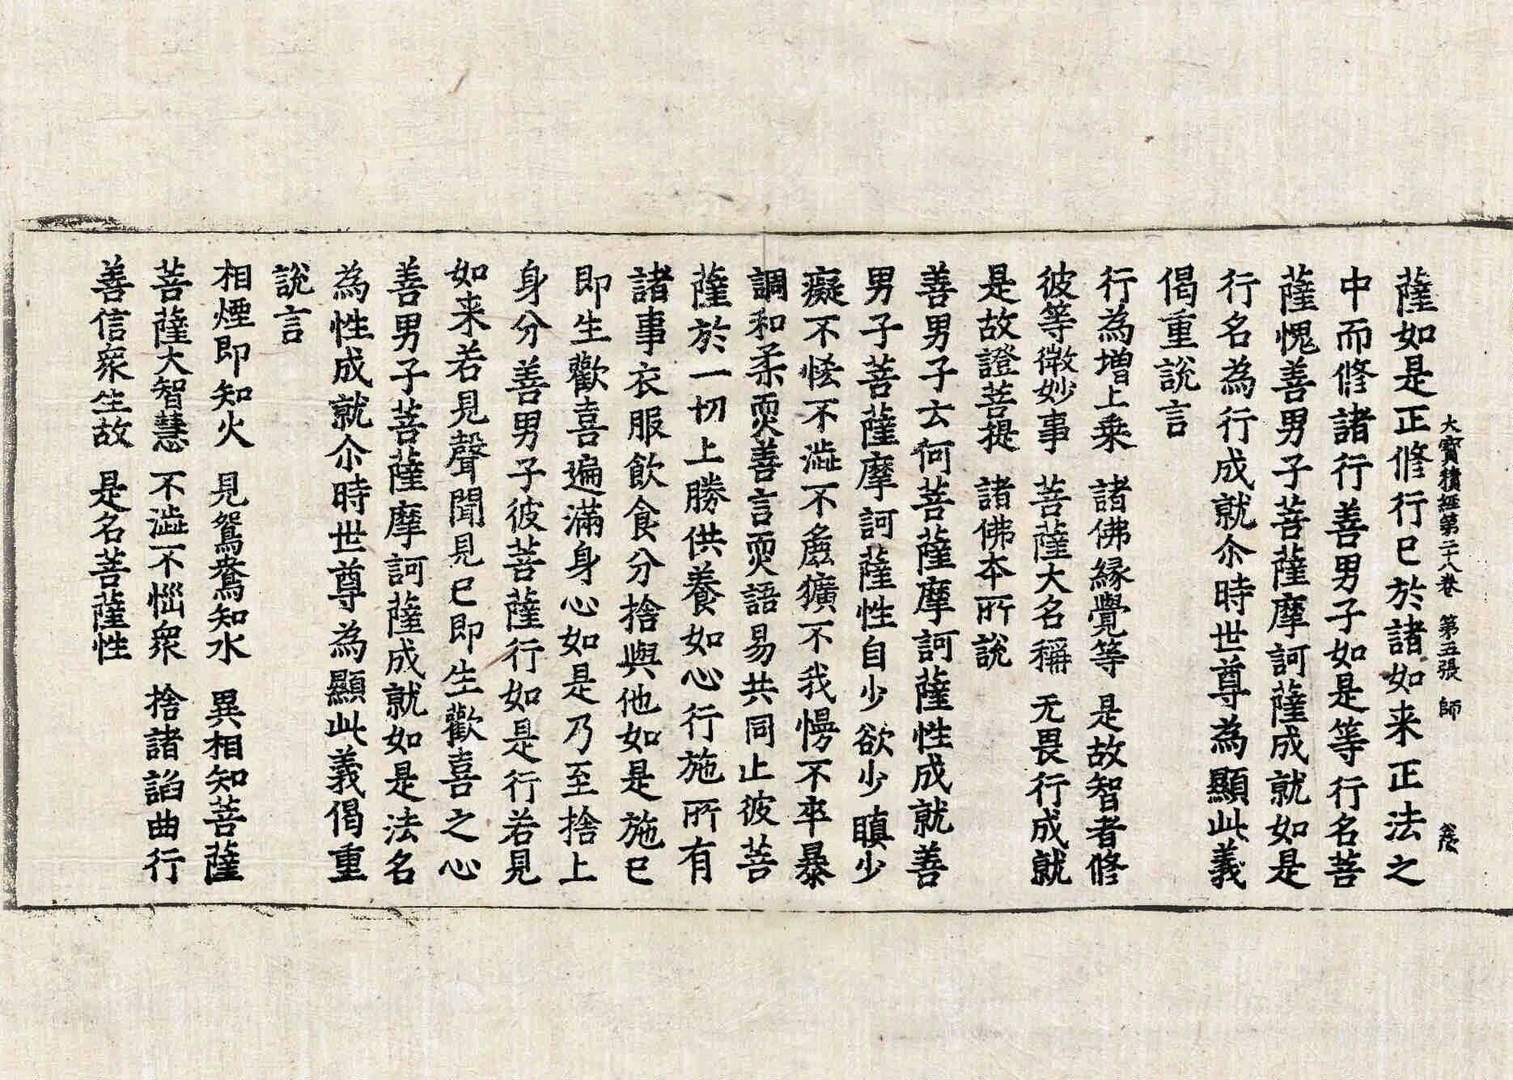 大寶積經第二十八卷　第五張　師
薩如是正修行已於諸如来正法之
中而修諸行善男子如是等行名菩
薩愧善男子菩薩摩訶薩成就如是
行名為行成就尒時世尊為顯此義
偈重說言
行為增上乗　諸佛緣覺等　是故智者修
彼等微妙事　菩薩大名稱　无畏行成就
是故證菩提　諸佛夲所說
善男子云何菩薩摩訶薩性成就善
男子菩薩摩訶薩性自少欲少瞋少
癡不恡不澁不麁獷不我慢不卒暴
調和柔耎善言耎語易共同止彼菩
薩於一切上勝供養如心行施所有
諸事衣服飲食分捨與他如是施已
即生歡喜遍滿身心如是乃至捨上
身分善男子彼菩薩行如是行若見
如来若見聲聞見已即生歡喜之心
善男子菩薩摩訶薩成就如是法名
為性成就尒時世尊為顯此義偈重
說言
相煙即知火　見鴛鴦知水　異相知菩薩
菩薩大智慧　不澁不惱衆　捨諸諂曲行
善信衆生故　是名菩薩性